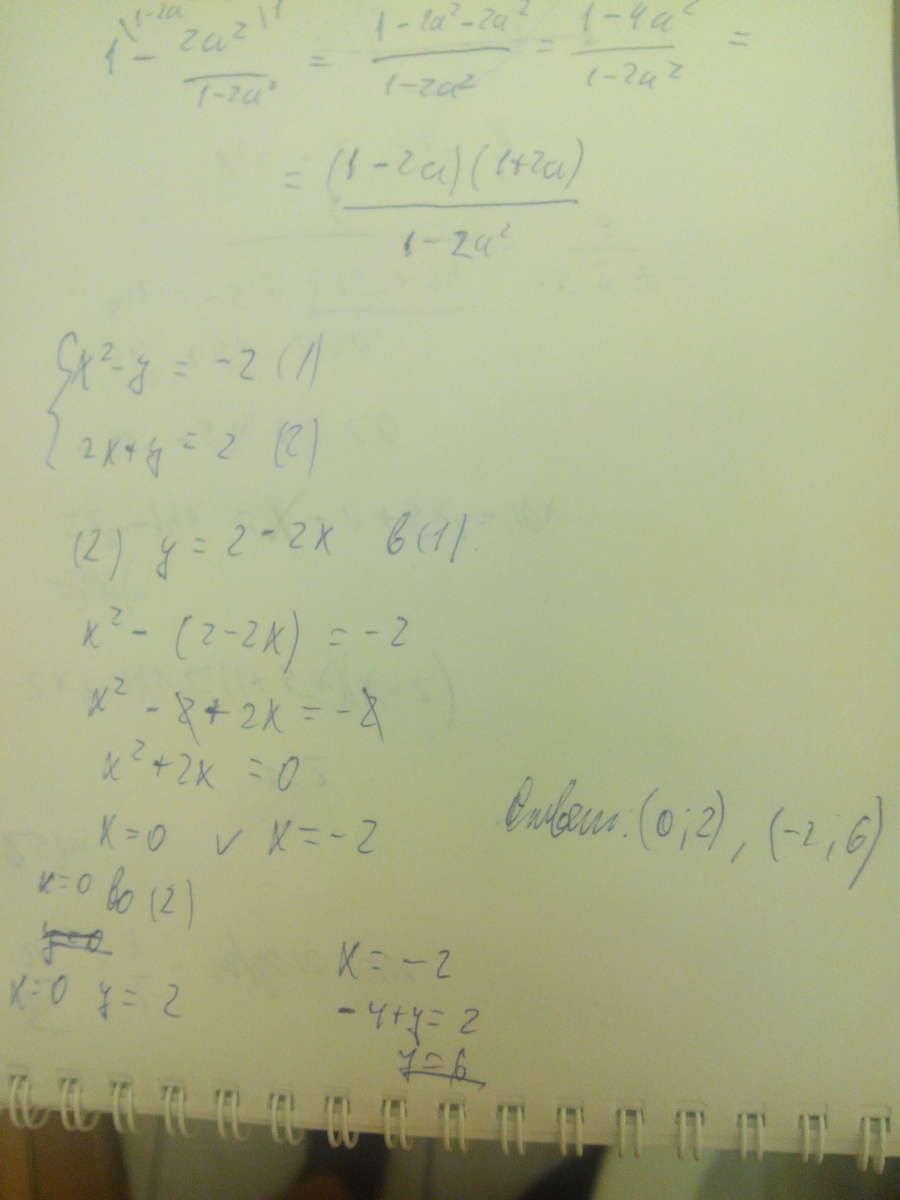 1\1-2a² - 2a²\1 / 1-2a² = 1-2a²-2a² / 1-2a² = 1-4a² / 1-2a² =
= (1-2a)(1+2a) / 1-2a²
{ x²-y = -2 (1)
2x+y = 2 (2)
(2) y = 2-2x в (1):
x² - (2-2x) = -2
x² - 2 + 2x = -2
x² + 2x = 0
x=0 ∨ x=-2
Ответ: (0;2), (-2,6)
x=0 во (2)
y=0
x=0 y=2
x = -2
-4+y=2
y=6